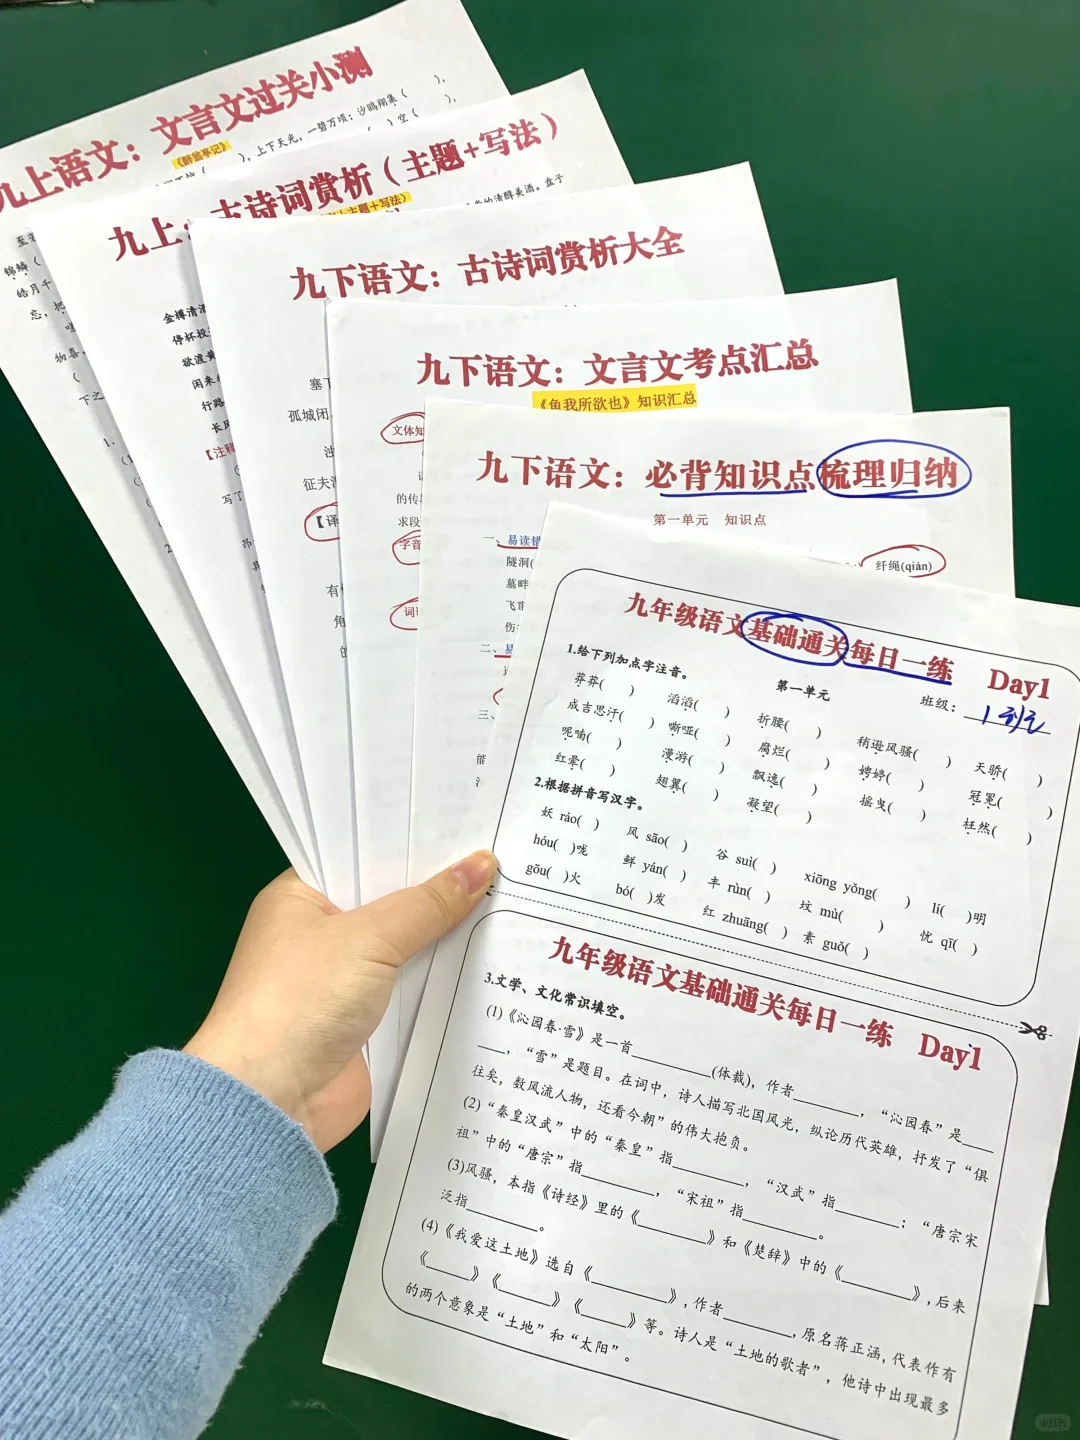 九上语文：文言文过关小测
《醉翁亭记》
)，上下天光，一碧万顷；沙鸥翔集(　)，
) 空 (　)，
至若
锦鳞 (
皓月千
忘，把
物喜，
(
下之
1.
九上：古诗词赏析（主题+写法）
主题+写法）
的清醇美酒。盘子
金樽清酒
停杯投
欲渡黄
闲来
行路
长风
【注释
写了
九下语文：古诗词赏析大全
塞下
孤城闭
浊
征夫
【译
有
角
的
九下语文：文言文考点汇总
《鱼我所欲也》知识汇总
文体知
的传
求段
字音
词
九下语文：必背知识点梳理归纳
第一单元　知识点
一、易读错
纤绳(qiàn)
隧洞(
墓畔
飞
伤
二、易
三、
能
九年级语文基础通关每日一练　Day1
第一单元
班级：
1.给下列加点字注音。
莽莽(　)　滔滔(　)　折腰(　)　稍逊风骚(　)　天骄(　)
成吉思汗(　)　嘶哑(　)　腐烂(　)　娉婷(　)　冠冕(　)
呢喃(　)　漫游(　)　飘逸(　)　摇曳(　)　枉然(　)
红晕(　)　翅翼(　)　凝望(　)
2.根据拼音写汉字。
妖 ráo(　)　风 sāo(　)　谷 suì(　)　xiōng yǒng(　)　lí(　)明
hóu(　)咙　鲜 yán(　)　丰 rùn(　)　坟 mù(　)　忧 qī(　)
gōu(　)火　bó(　)发　红 zhuāng(　)　素 guǒ(　)
九年级语文基础通关每日一练　Day1
3.文学、文化常识填空。
(1)《沁园春·雪》是一首________(体裁)，作者________，“沁园春”是____
____，“雪”是题目。在词中，诗人描写北国风光，纵论历代英雄，抒发了“俱
往矣，数风流人物，还看今朝”的伟大抱负。
(2)“秦皇汉武”中的“秦皇”指________，“汉武”指________；“唐宗宋
祖”中的“唐宗”指________，“宋祖”指________。
(3)风骚，本指《诗经》里的《________》和《楚辞》中的《________》，后来
泛指________。
(4)《我爱这土地》选自《________》，作者________，原名蒋正涵，代表作有
《____》《____》《____》等。诗人是“土地的歌者”，他诗中出现最多
的两个意象是“土地”和“太阳”。
小红书